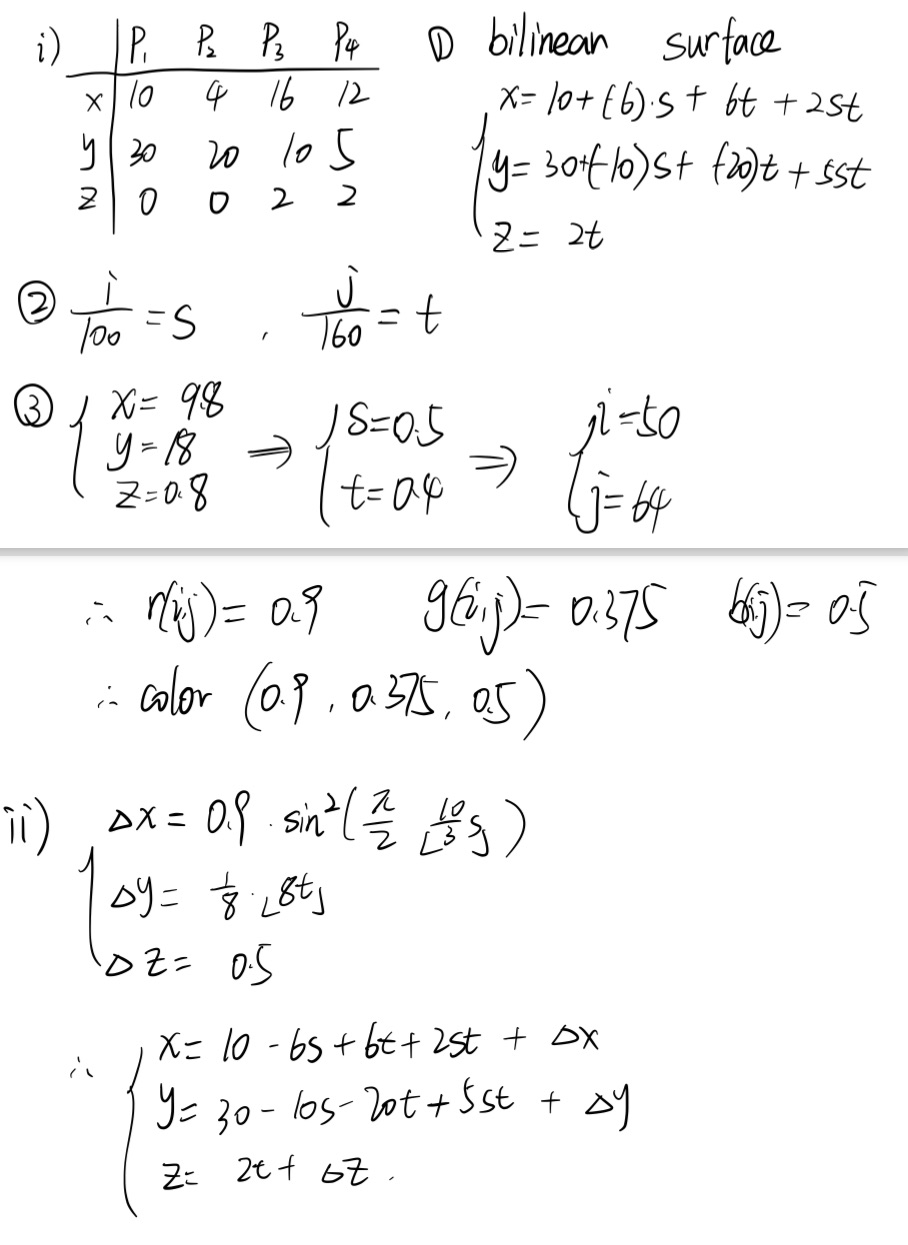 i) P₁ P₂ P₃ P₄
x 10 4 16 12
y 30 20 10 5
z 0 0 2 2
① bilinean surface
x= 10+(-6)·s+ 6t +2st
y= 30+(-10)s+ (-20)t + 5st
z= 2t
② i/100 = s , j/160 = t
③ { x= 9.8 y= 18 z=0.8 ⇒ { s=0.5 t=0.4 ⇒ { i=50 j=64
∴ r(i,j)= 0.9 g(i,j)= 0.375 b(i,j)= 0.5
∴ color (0.9, 0.375, 0.5)
ii) Δx= 0.9 · sin²(π/2 ⌊10/3 s⌋)
Δy= 1/8 · ⌊8t⌋
Δz= 0.5
∴ x= 10 - 6s + 6t + 2st + Δx
y= 30 - 10s - 20t + 5st + Δy
z= 2t + Δz .